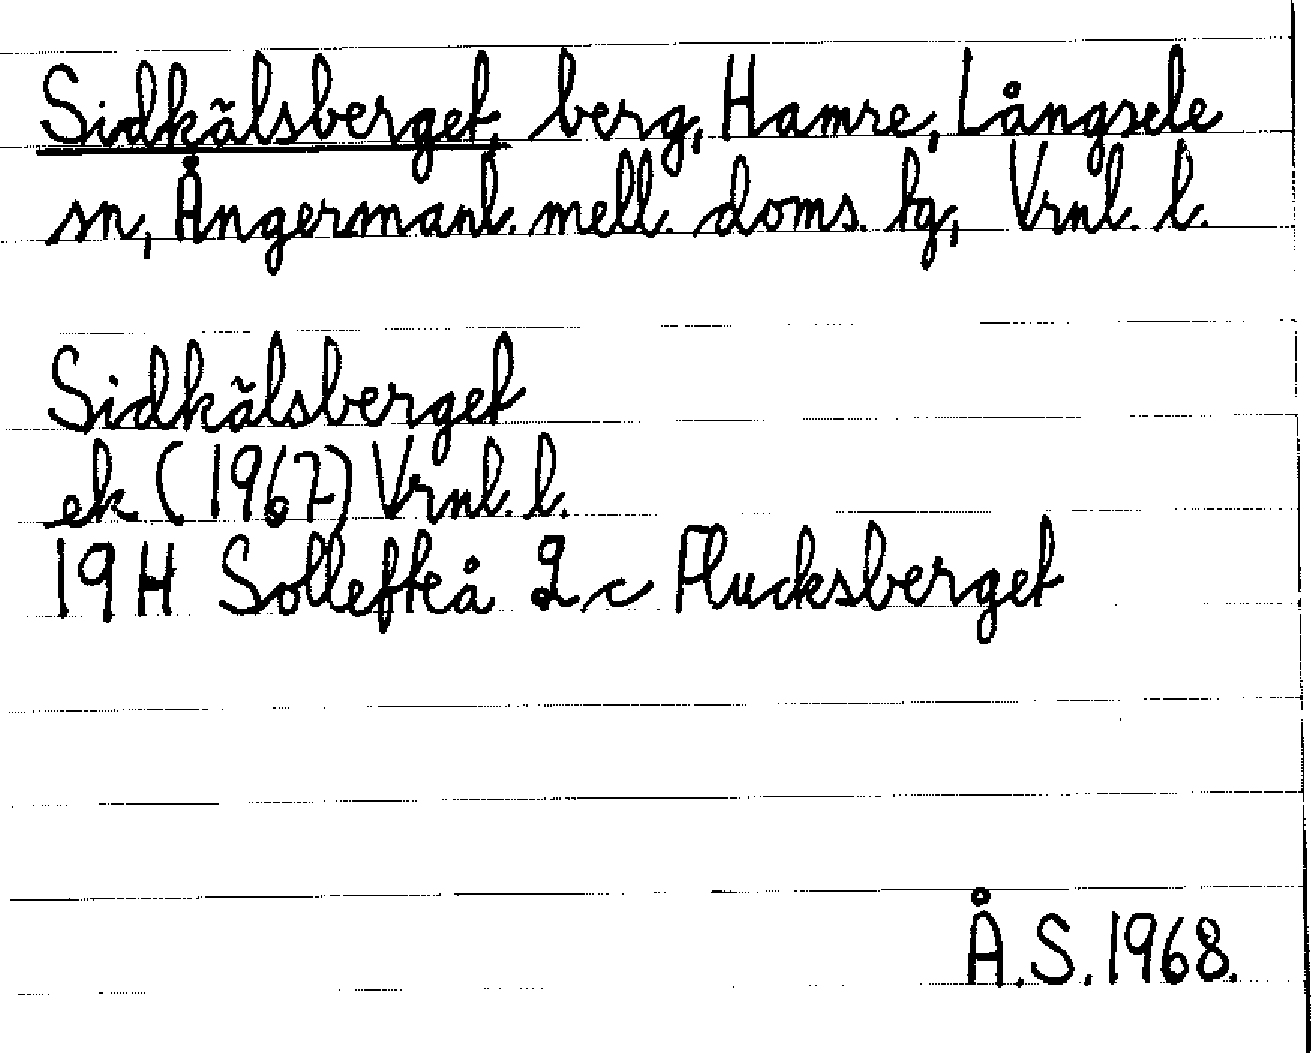 Sidkälsberget, berg, Hamre, Långsele
sn, Ångermanl. mell. doms. tg, Vrnl. l.
Sidkälsberget
ek (1967) Vrnl. l.
19 H Sollefteå 2 c Flucksberget
Å.S. 1968.